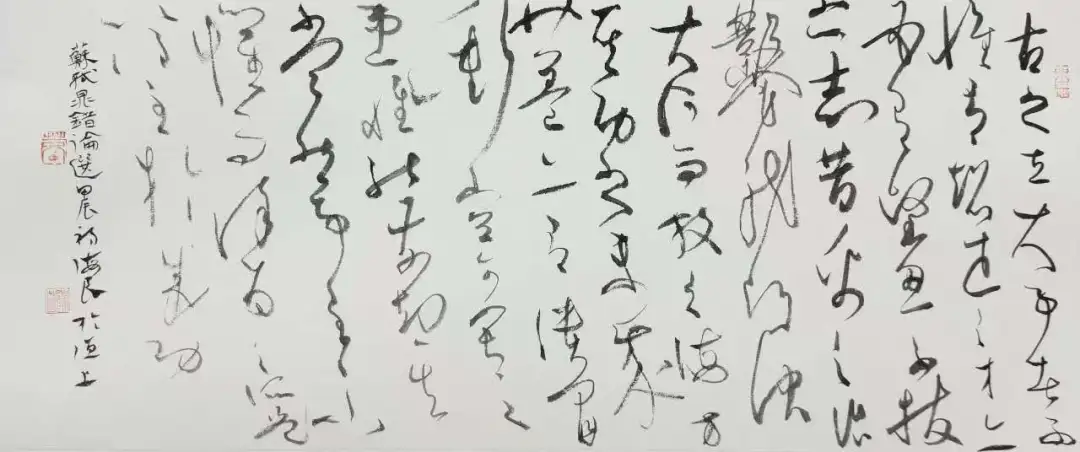 古之立大事者不
惟有超世之才亦
必有堅忍不拔
之志昔禹之治
鑿龍門決
大河而放之海方
其功之未成
也蓋亦有潰冒
衝突可畏之
患惟能前知其
當然事至不
懼而徐為之圖
得至於成功
蘇軾晁錯論選甲辰初海民於上